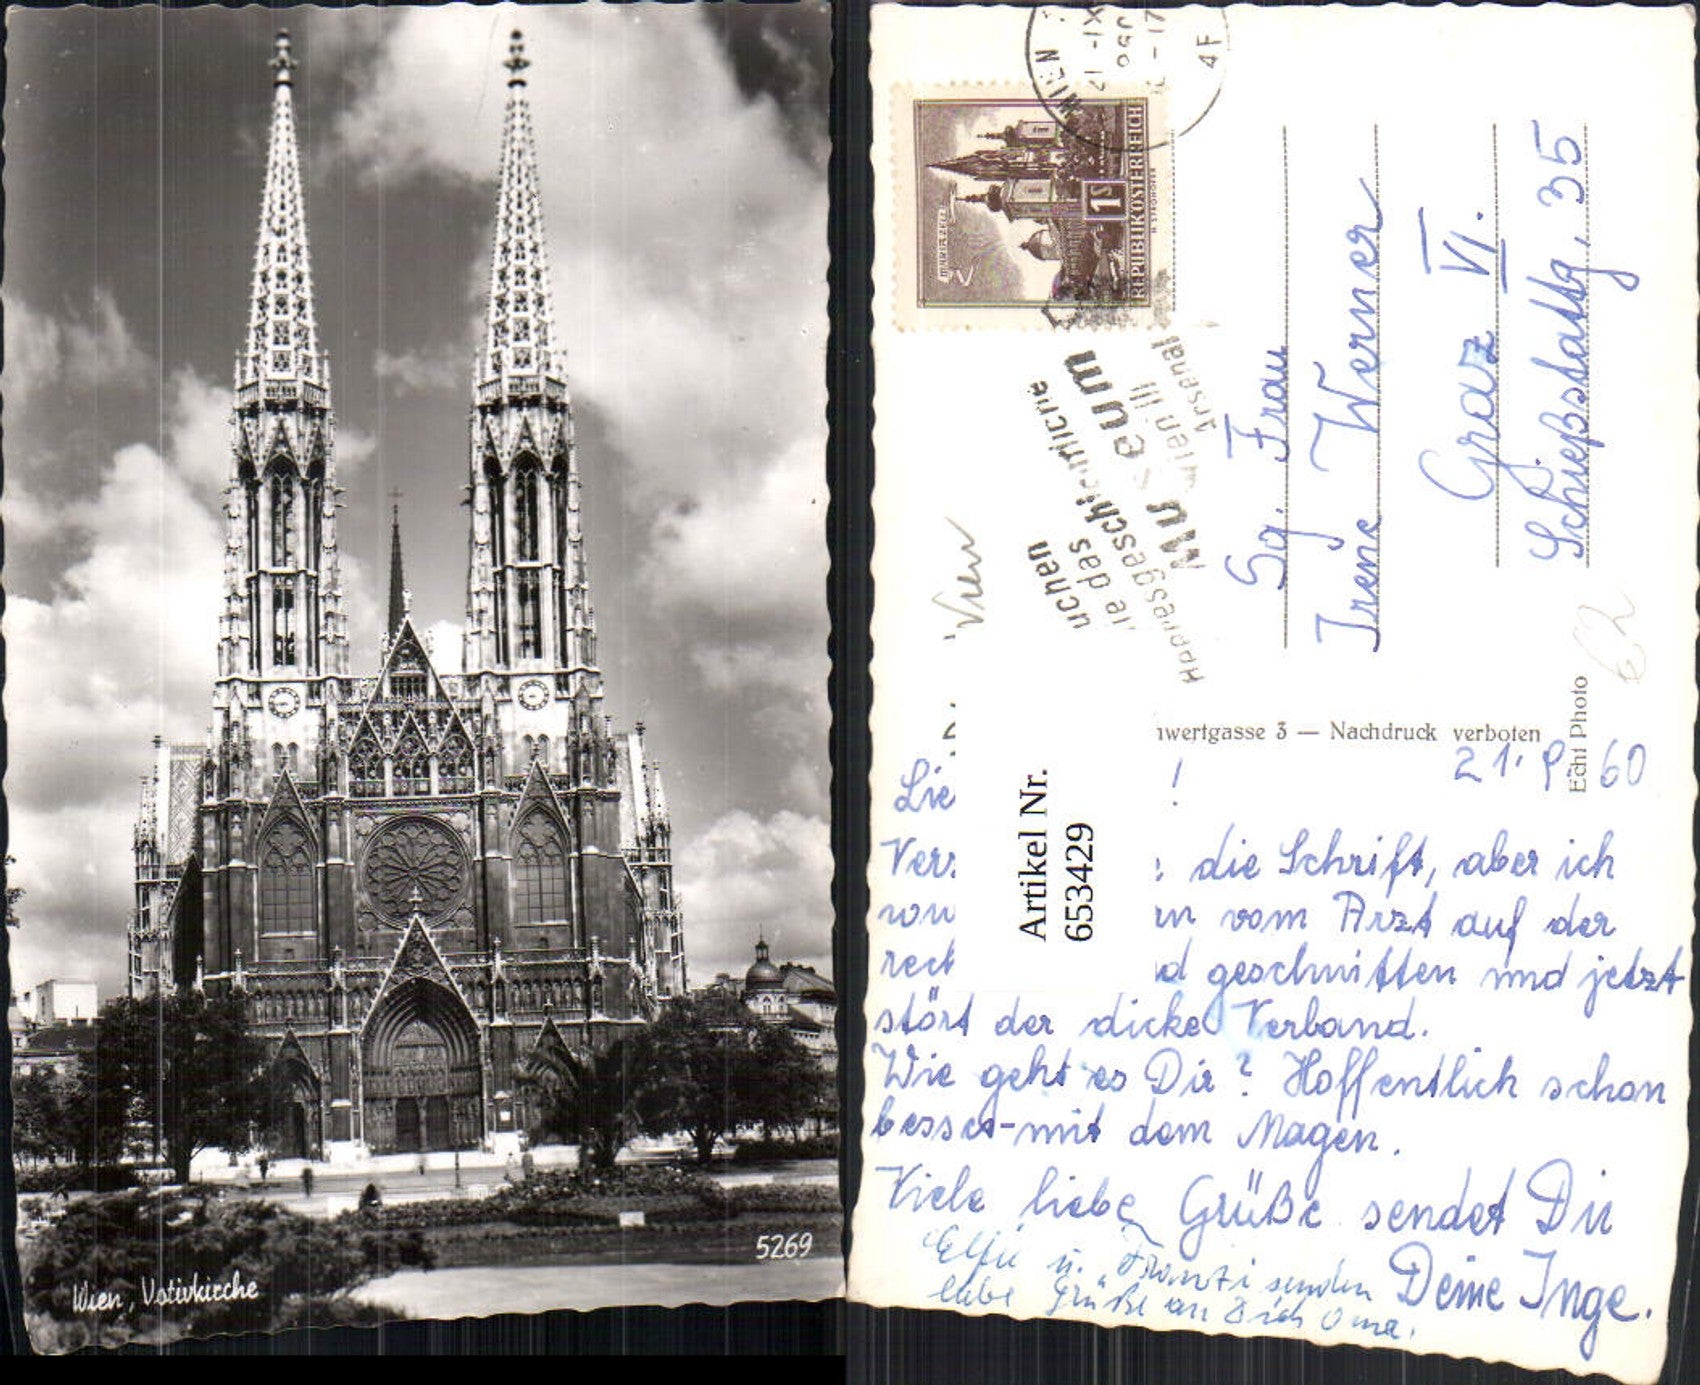 Wien, Votivkirche
5269
WIEN
21.-IX
4F
MARIAZELL
1S
REPUBLIK ÖSTERREICH
uchen
ie das
Heeresgeschichtliche
Museum
Wien III
Arsenal
Sg. Frau
Irene Werner
Graz VI.
Schießstattg, 35
Wien
€2
Echt Photo
wertgasse 3 — Nachdruck verboten
Artikel Nr.
6534429
21. 9. 60
Lie !
Verz die Schrift, aber ich
vom Arzt auf der
rech d geschnitten und jetzt
stört der dicke Verband.
Wie geht es Dir? Hoffentlich schon
besser-mit dem Magen.
Viele liebe Grüße sendet Dir
Deine Inge.
Elfie u. Franzi senden
liebe Grüße an Dich Oma.